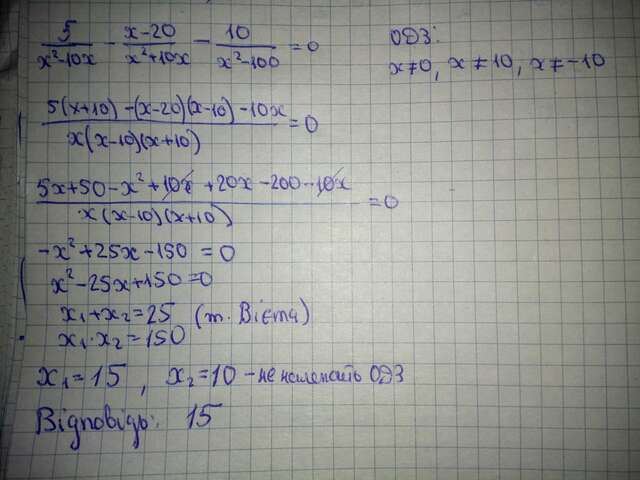 5/(x²-10x) - (x-20)/(x²+10x) - 10/(x²-100) = 0
ОДЗ:
x≠0, x≠10, x≠-10
(5(x+10) - (x-20)(x-10) - 10x)/(x(x-10)(x+10)) = 0
(5x+50-x²+10x+20x-200-10x)/(x(x-10)(x+10)) = 0
-x²+25x-150=0
x²-25x+150=0
x₁+x₂=25 (т. Вієта)
x₁·x₂=150
x₁=15, x₂=10 - не належить ОДЗ
Відповідь: 15